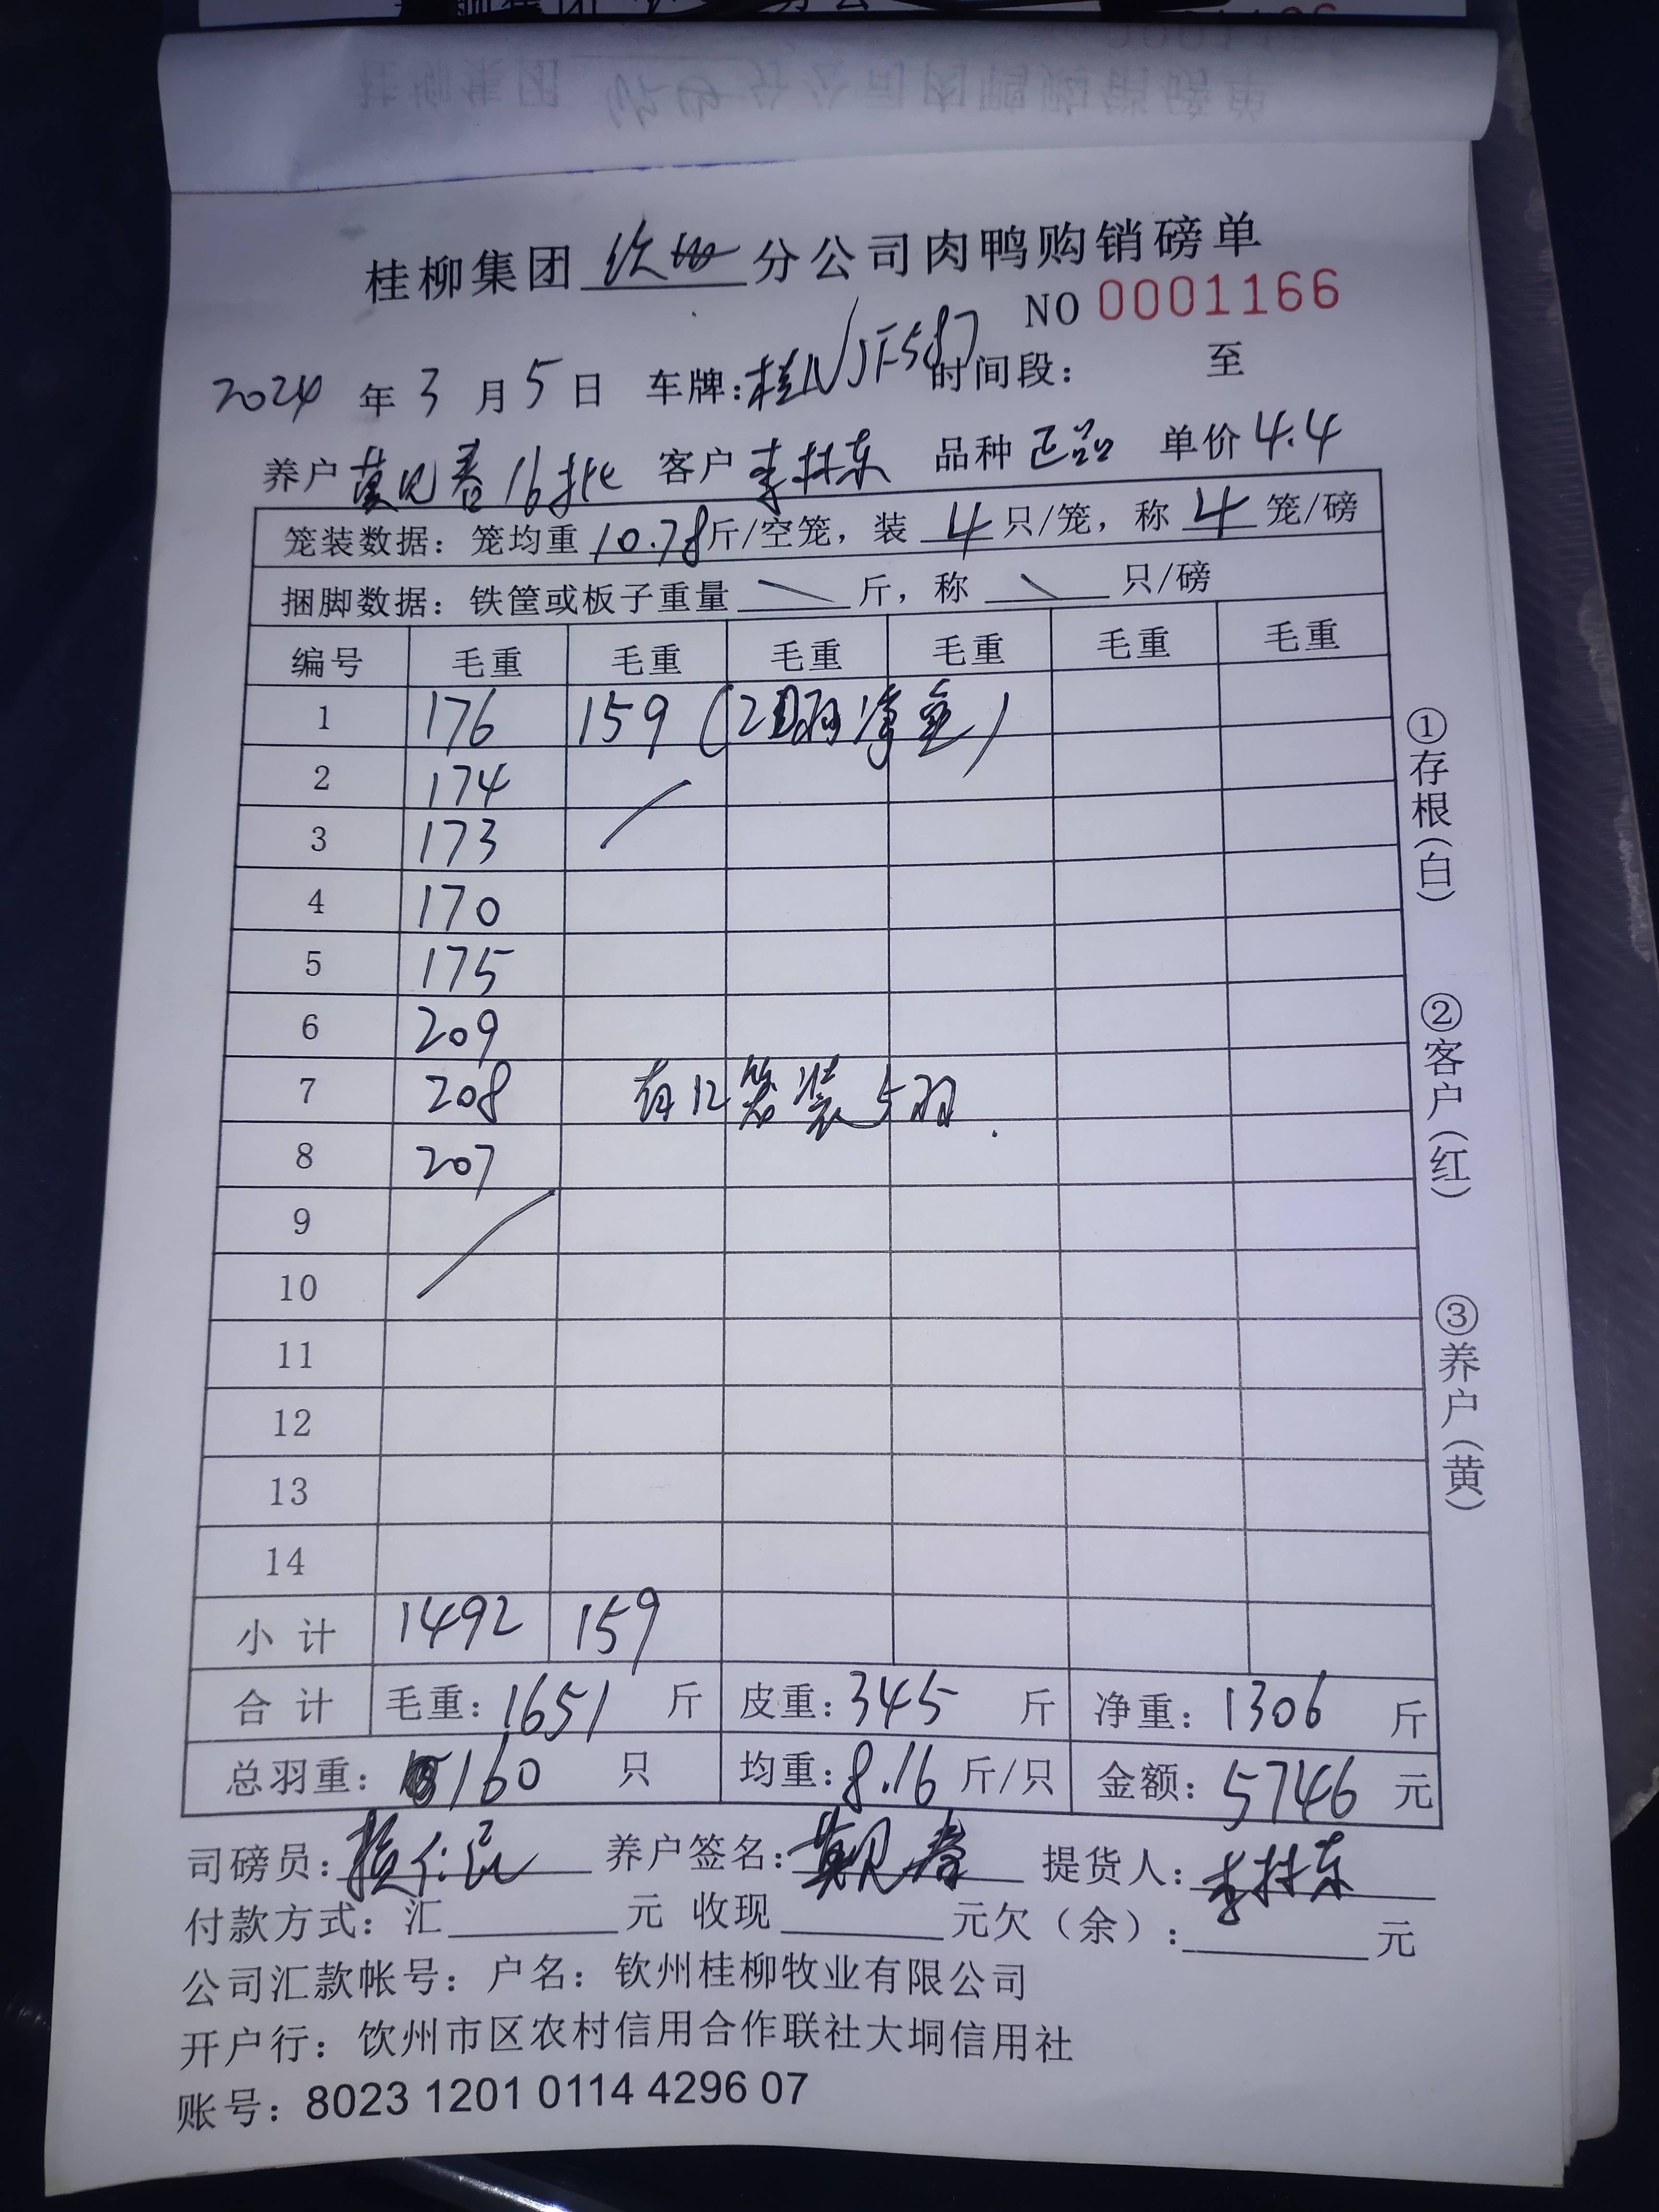 桂柳集团 钦州 分公司肉鸭购销磅单
NO 0001166
2024 年 3 月 5 日 车牌:桂NJF587 时间段: 至
养户 莫见春 16批 客户 李林东 品种 正品 单价 4.4
笼装数据:笼均重 10.78 斤/空笼,装 4 只/笼,称 4 笼/磅
捆脚数据:铁筐或板子重量 \ 斤,称 \ 只/磅
编号 毛重 毛重 毛重 毛重 毛重 毛重
1 176 159 (20羽净重)
2 174
3 173
4 170
5 175
6 209
7 208 有12笼装5羽.
8 207
9
10
11
12
13
14
小计 1492 159
合计 毛重:1651 斤 皮重:345 斤 净重:1306 斤
总羽重:160 只 均重:8.16 斤/只 金额:5746 元
司磅员: 养户签名:莫见春 提货人:李林东
付款方式:汇 元 收现 元欠(余): 元
公司汇款帐号:户名:钦州桂柳牧业有限公司
开户行:饮州市区农村信用合作联社大垌信用社
账号:8023 1201 0114 4296 07
①存根(白) ②客户(红) ③养户(黄)